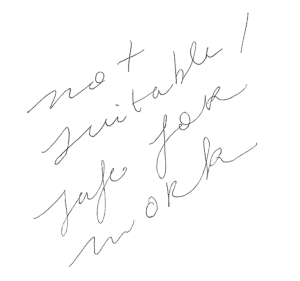 not
suitable/
safe for
work